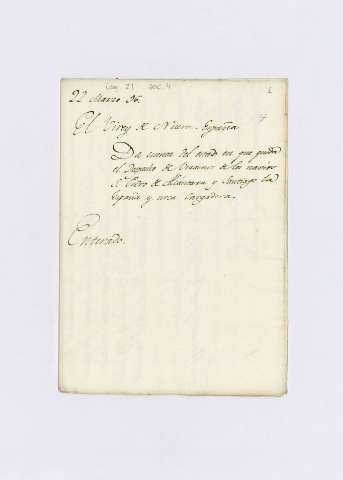 Leg. 21 Doc. 4
1
22 Marzo 96.
4
El Virey de Nueva España
Da cuenta del estado en que queda
el Despacho de Veracruz de los navios
Sn. Pedro de Alcantara y Santiago la
España y urca Cargadora.
Enterado.